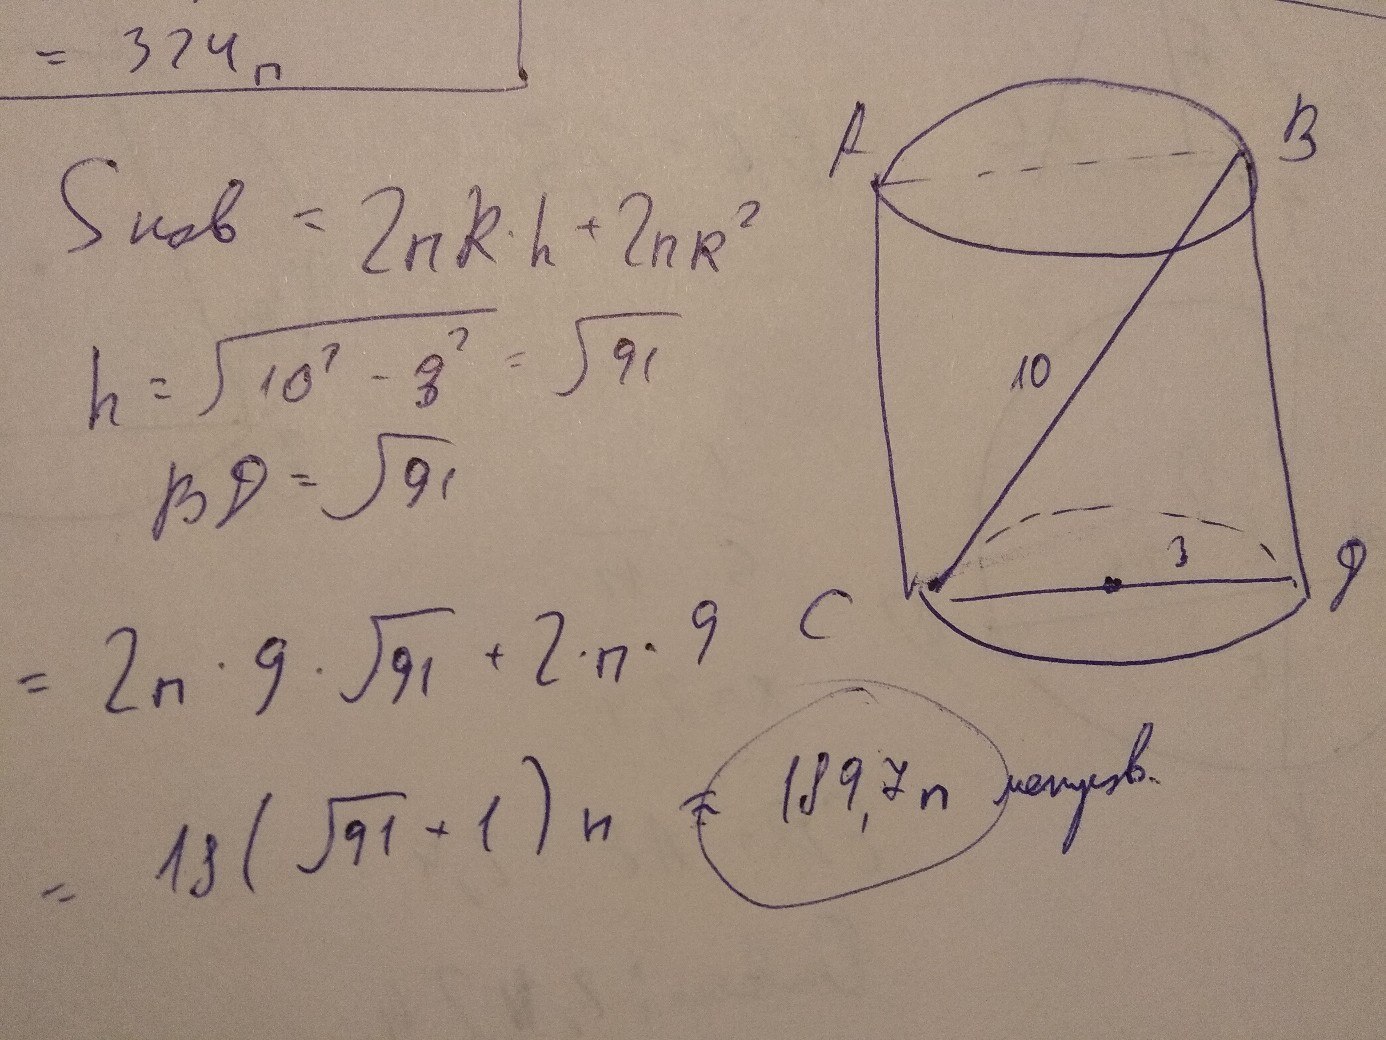 = 324п
Sцов = 2пR·h + 2пR²
h = √10² - 3² = √91
BD = √91
= 2п · 9 · √91 + 2·п · 9
= 18(√91 + 1)п = 189,7п
A
B
10
3
C
D